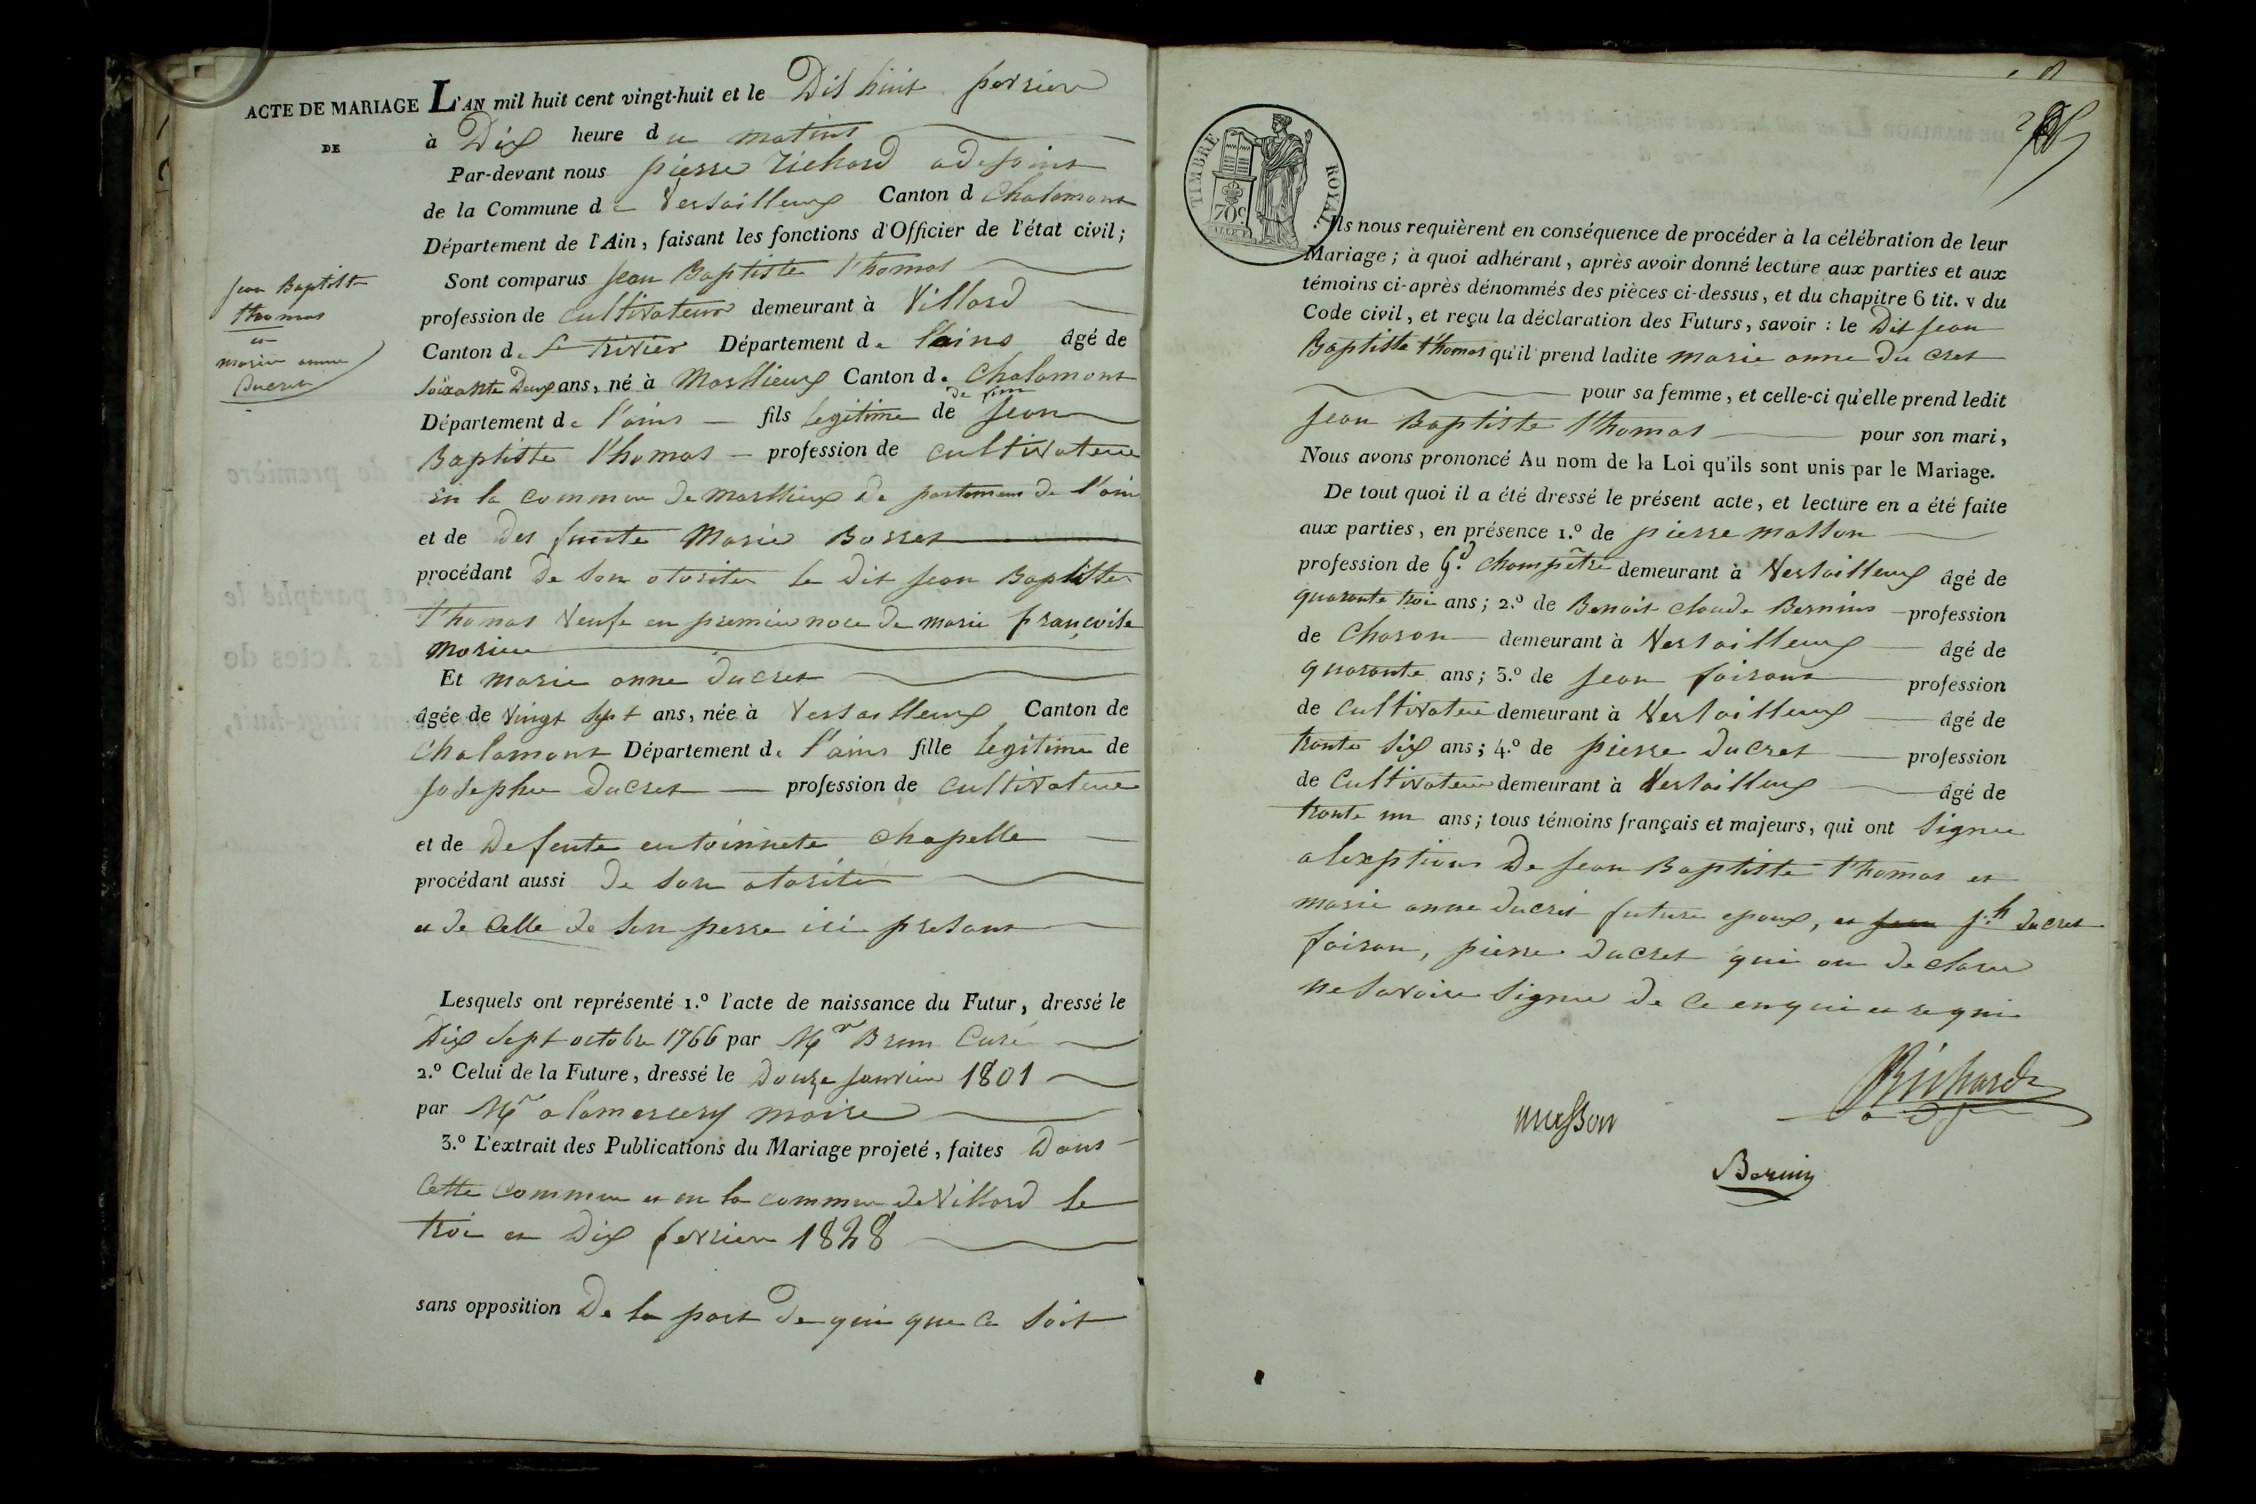 ACTE DE MARIAGE
DE
Jean Baptiste
thomas
et
marie anne
Ducret
L'AN mil huit cent vingt-huit et le Dis huit fevrier
à Dix heure du matins
Par-devant nous pierre Richard adesoint
de la Commune de Versailleux Canton d Chalamont
Département de l'Ain, faisant les fonctions d'Officier de l'état civil;
Sont comparus Jean Baptiste Thomas
profession de cultivateur demeurant à Villard
Canton de St trivier Département de l'ains âgé de
soixante Deux ans, né à Marllieux Canton de Chalamont
Département de l'ains fils legitime de Jean
Baptiste Thomas profession de cultivateur
en la commune de Marllieux de partement de l'ain
et de des funte Marie Bosset
procédant de son otorite le dit Jean Baptiste
Thomas veufe en premier noce de marie françoise
Morieu
Et marie anne Ducret
âgée de vingt sept ans, née à Versailleux Canton de
Chalamont Département de l'ains fille legitime de
Josephe Ducret profession de cultivateur
et de Defente entoinnete chapelle
procédant aussi de son otorité
et de celle de son perre ici presant
Lesquels ont représenté 1.º l'acte de naissance du Futur, dressé le
Dix sept octobre 1766 par Mr Brun Curé
2.º Celui de la Future, dressé le Douze janvier 1801
par Mr alamercery maire
3.º L'extrait des Publications du Mariage projeté, faites Dans
Cette Commune et en la commune de Villard le
troi et Dix fevrier 1828
sans opposition De la part de qui que ce soit
TIMBRE ROYAL.
70c.
Ils nous requièrent en conséquence de procéder à la célébration de leur
Mariage; à quoi adhérant, après avoir donné lecture aux parties et aux
témoins ci-après dénommés des pièces ci-dessus, et du chapitre 6 tit. v du
Code civil, et reçu la déclaration des Futurs, savoir: le Dit Jean
Baptiste thomas qu'il prend ladite marie anne du cret
pour sa femme, et celle-ci qu'elle prend ledit
Jean Baptiste Thomas pour son mari,
Nous avons prononcé Au nom de la Loi qu'ils sont unis par le Mariage.
De tout quoi il a été dressé le présent acte, et lecture en a été faite
aux parties, en présence 1.º de pierre masson
profession de Gd champêtre demeurant à Versailleux âgé de
quarante troi ans; 2.º de Benoit claude Bernins profession
de Charon demeurant à Versailleux âgé de
quarante ans; 3.º de Jean foisont profession
de Cultivateur demeurant à Versailleux âgé de
trante six ans; 4.º de pierre Ducret profession
de Cultivateur demeurant à Versailleux âgé de
trante un ans; tous témoins français et majeurs, qui ont signee
alexptions de Jean Baptiste Thomas et
marie anne ducret future epoux, et jh ducret
foison, pierre ducret qui on declare
ne savoire signee de ce enqui et requi
Richard
masson
Bernin